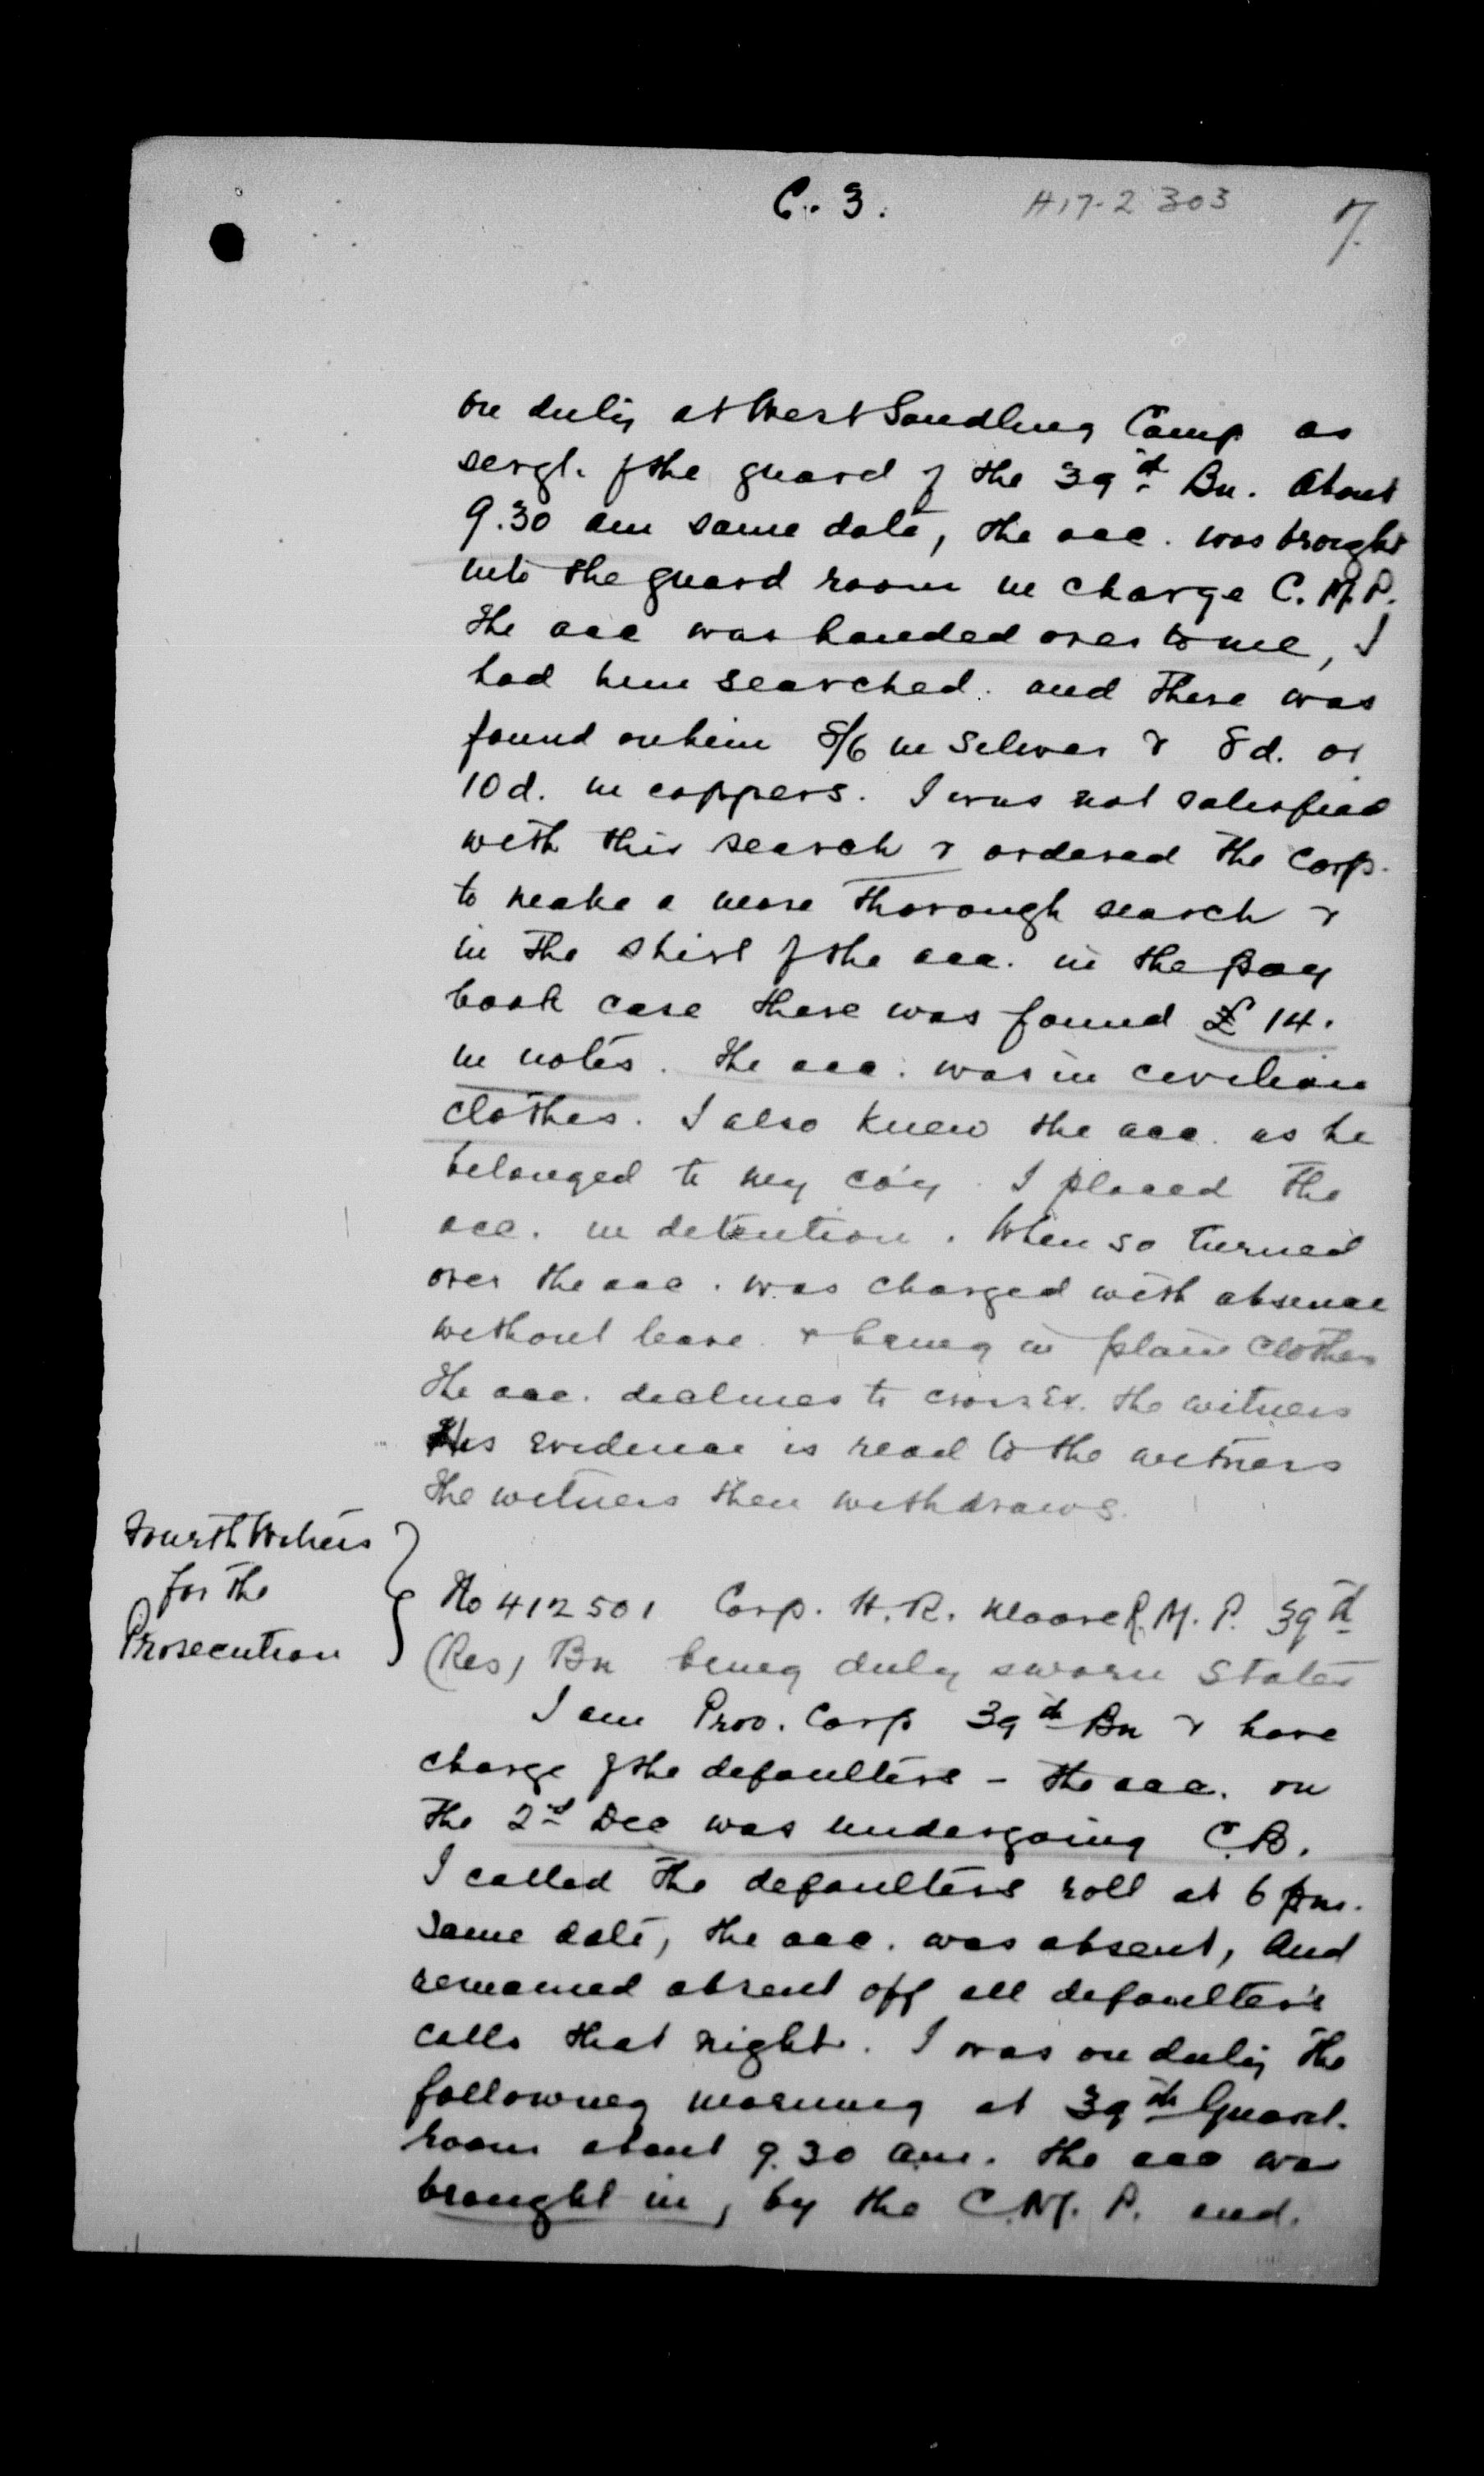 C. 3.
H17-2 303
7.
on duty at West Sandling Camp as
sergt. of the guard of the 39th Bn. About
9.30 am same date, the acc. was brought
into the guard room in charge C. M. P.
The acc was handed over to me, I
had him searched. and there was
found on him 8/6 in silver & 8d. or
10d. in coppers. I was not satisfied
with this search & ordered the Corp.
to make a more thorough search &
in the shirt of the acc. in the pay
book case there was found £14.
in notes. The acc. was in civilian
clothes. I also knew the acc. as he
belonged to my co'y. I placed the
acc. in detention. When so turned
over the acc. was charged with absence
without leave & being in plain clothes
The acc. declines to cross Ex. the witness
His evidence is read to the witness
The witness then withdraws.
Fourth Witness
for the
Prosecution
No 412501 Corp. H. R. Moore R. M. P. 39th
(Res) Bn being duly sworn states
I am Prov. Corp 39th Bn & have
charge of the defaulters - The acc. on
the 2nd Dec was undergoing C.B.
I called the defaulters roll at 6 pm.
same date, the acc. was absent, and
remained absent off all defaulter's
calls that night. I was on duty the
following morning at 39th Guard.
room about 9.30 am. The acc was
brought in, by the C. M. P. and.